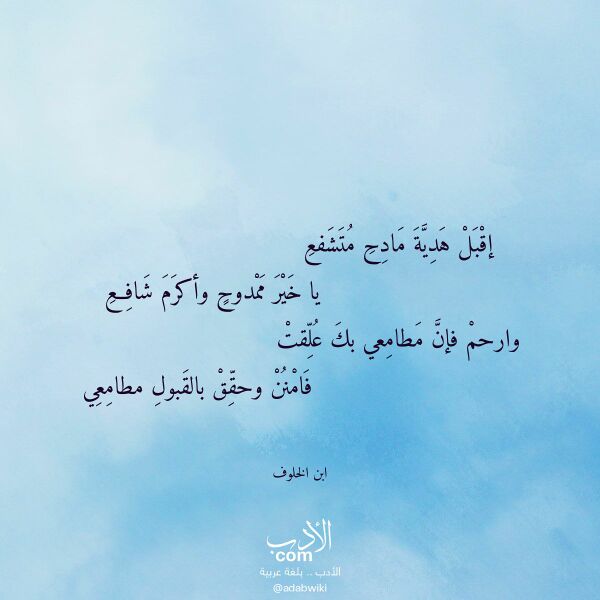 إقْبَلْ هَدِيَّةَ مَادِحِ مُتَشَفعِ
يا خَيْرَ مَمْدوحٍ وأكرَمَ شَافِعِ
وارحمْ فإنَّ مَطامِعي بكَ عُلِّقتْ
فَامْنُنْ وحقِّقْ بالقَبولِ مطامِعِي
ابن الخلوف
الأدب
com
الأدب .. بلغة عربية
@adabwiki